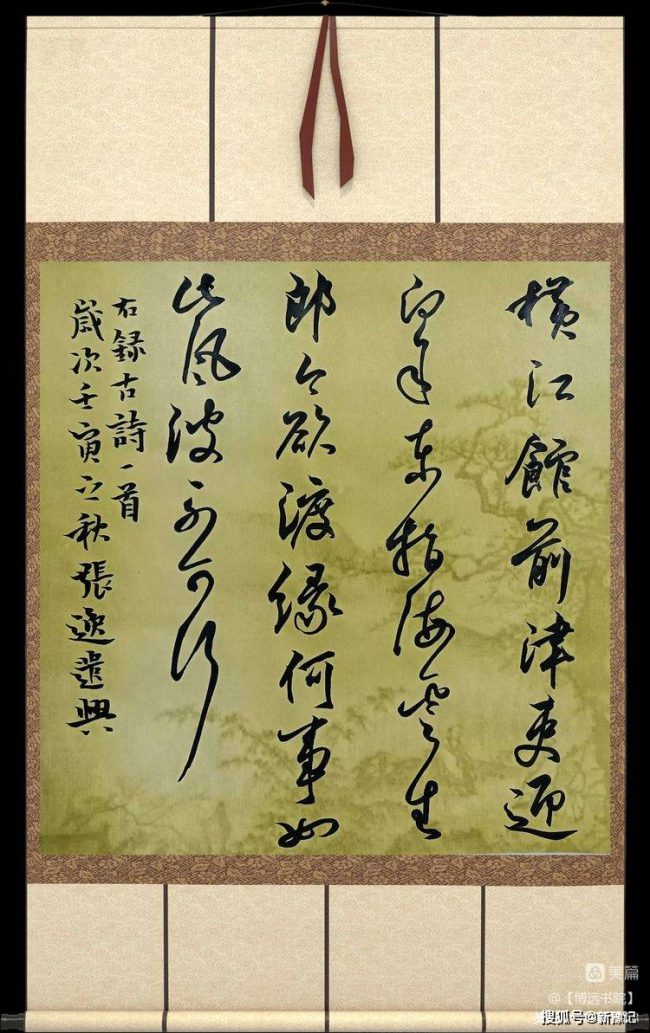 橫江館前津吏迎
向余東指海雲生
郎今欲渡緣何事如
此風波不可行
右録古詩一首
歲次壬寅之秋張逸遣興
美篇
@【博远书院】
搜狐号@新豫记